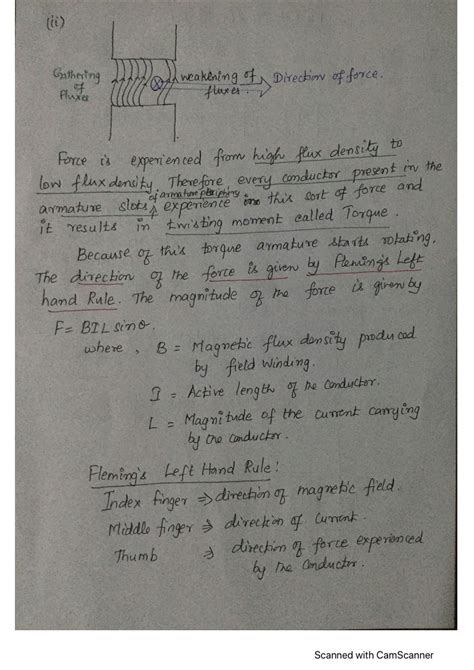 (ii)
Gathering of Fluxes
weakening of fluxes.
Direction of force.
Force is experienced from high flux density to
low flux density. Therefore every conductor present in the
of armature periphery
armature slots experience this sort of force and
it results in twisting moment called Torque.
Because of this torque armature starts rotating.
The direction of the force is given by Fleming's Left
hand Rule. The magnitude of the force is given by
F = BIL sinθ.
where, B = Magnetic flux density produced
by field winding.
I = Active length of the conductor.
L = Magnitude of the current carrying
by the conductor.
Fleming's Left Hand Rule:
Index finger ⇒ direction of magnetic field.
Middle finger ⇒ direction of current.
Thumb ⇒ direction of force experienced
by the conductor.
Scanned with CamScanner